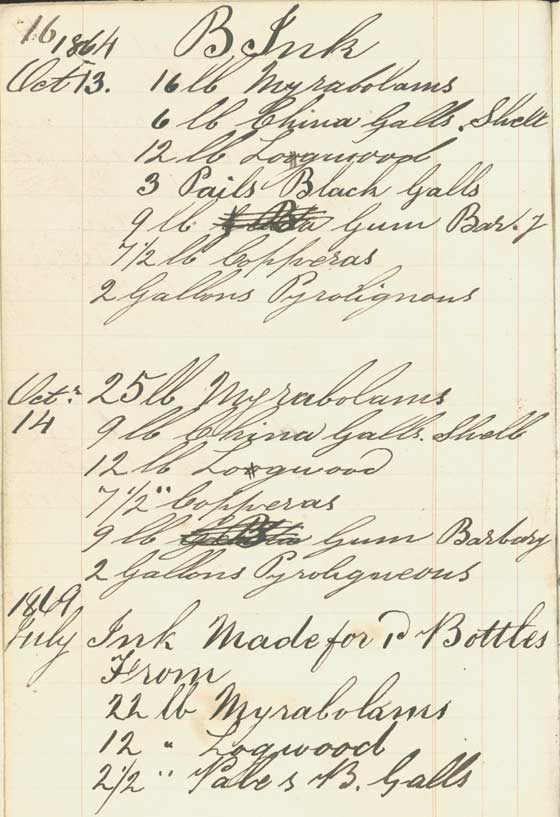 16 1864 B Ink
Oct 13. 16 lb Myrabolams
6 lb China Galls. Shell
12 lb Logwood
3 Pails Black Galls
9 lb Gum Bar.y
7 1/2 lb Copperas
2 Gallons Pyrolignous
Octr 25 lb Myrabolams
14 9 lb China Galls. Shell
12 lb Logwood
7 1/2 " Copperas
9 lb Gum Barbary
2 Gallons Pyroligneous
1869
July Ink Made for 1d Bottles
From
22 lb Myrabolams
12 " Logwood
2 1/2 " B. Galls